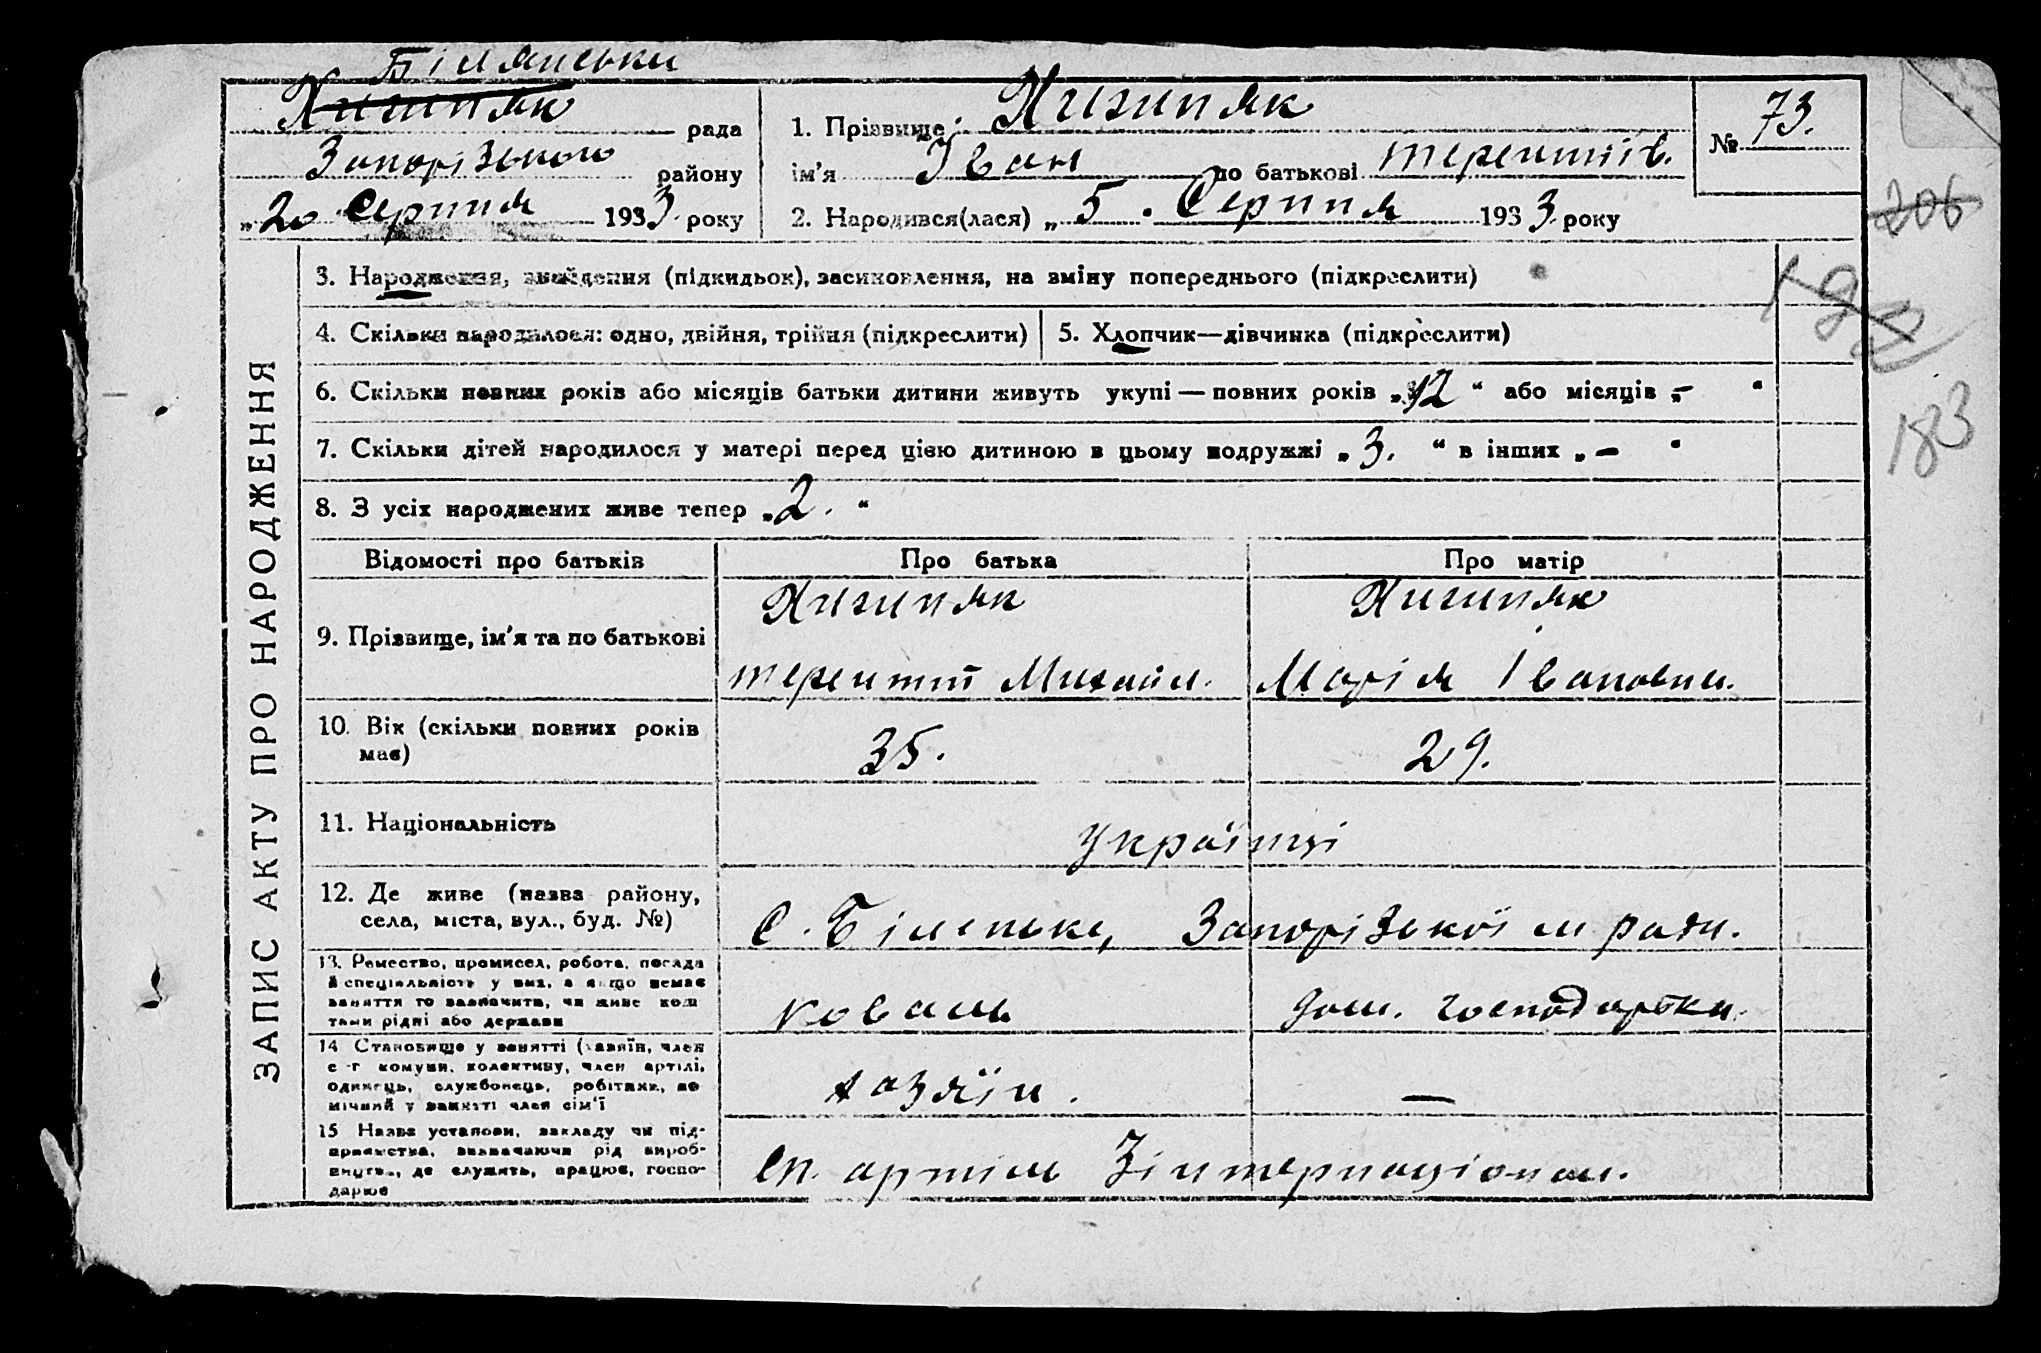 Білянська
Жигиняк рада
Запорізького району
„20 Серпня 1933. року
1. Прізвище Жигиняк
ім'я Іван по батькові Терентіів.
2. Народився(лася) „ 5 . Серпня 1933. року
№ 73.
206
183
ЗАПИС АКТУ ПРО НАРОДЖЕННЯ
3. Народження, знайдення (підкидьок), засиновлення, на зміну попереднього (підкреслити)
4. Скільки народилося: одно, двійня, трійня (підкреслити)
5. Хлопчик—дівчинка (підкреслити)
6. Скільки повних років або місяців батьки дитини живуть укупі — повних років „12“ або місяців „–“
7. Скільки дітей народилося у матері перед цією дитиною в цьому подружжі „3.“ в інших „–“
8. З усіх народжених живе тепер „2.“
Відомості про батьків Про батька Про матір
9. Прізвище, ім'я та по батькові
Жигиняк Жигиняк
Терентій Михайл. Марія Івановна.
10. Вік (скільки повних років
має)
35. 29.
11. Національність
Українці
12. Де живе (назва району,
села, міста, вул., буд. №)
С. Біленьке, Запорізької м ради.
13. Ремество, промисел, робота, посада
й спеціяльність у них, а якщо немає
заняття то зазначити, чи живе кош
тами рідні або держави
коваль дом. господарка.
14 Становище у занятті (хазяїн, член
с-г комуни, колективу, член артілі,
одинець, службовець, робітник, по
мічний у занятті член сім'ї
хазяїн. —
15 Назва установи, закладу чи під-
приємства, визначаючи рід вироб-
ництва, де служить, працює, госпо-
дарює
Сп. артіль 3 інтернаціонал.